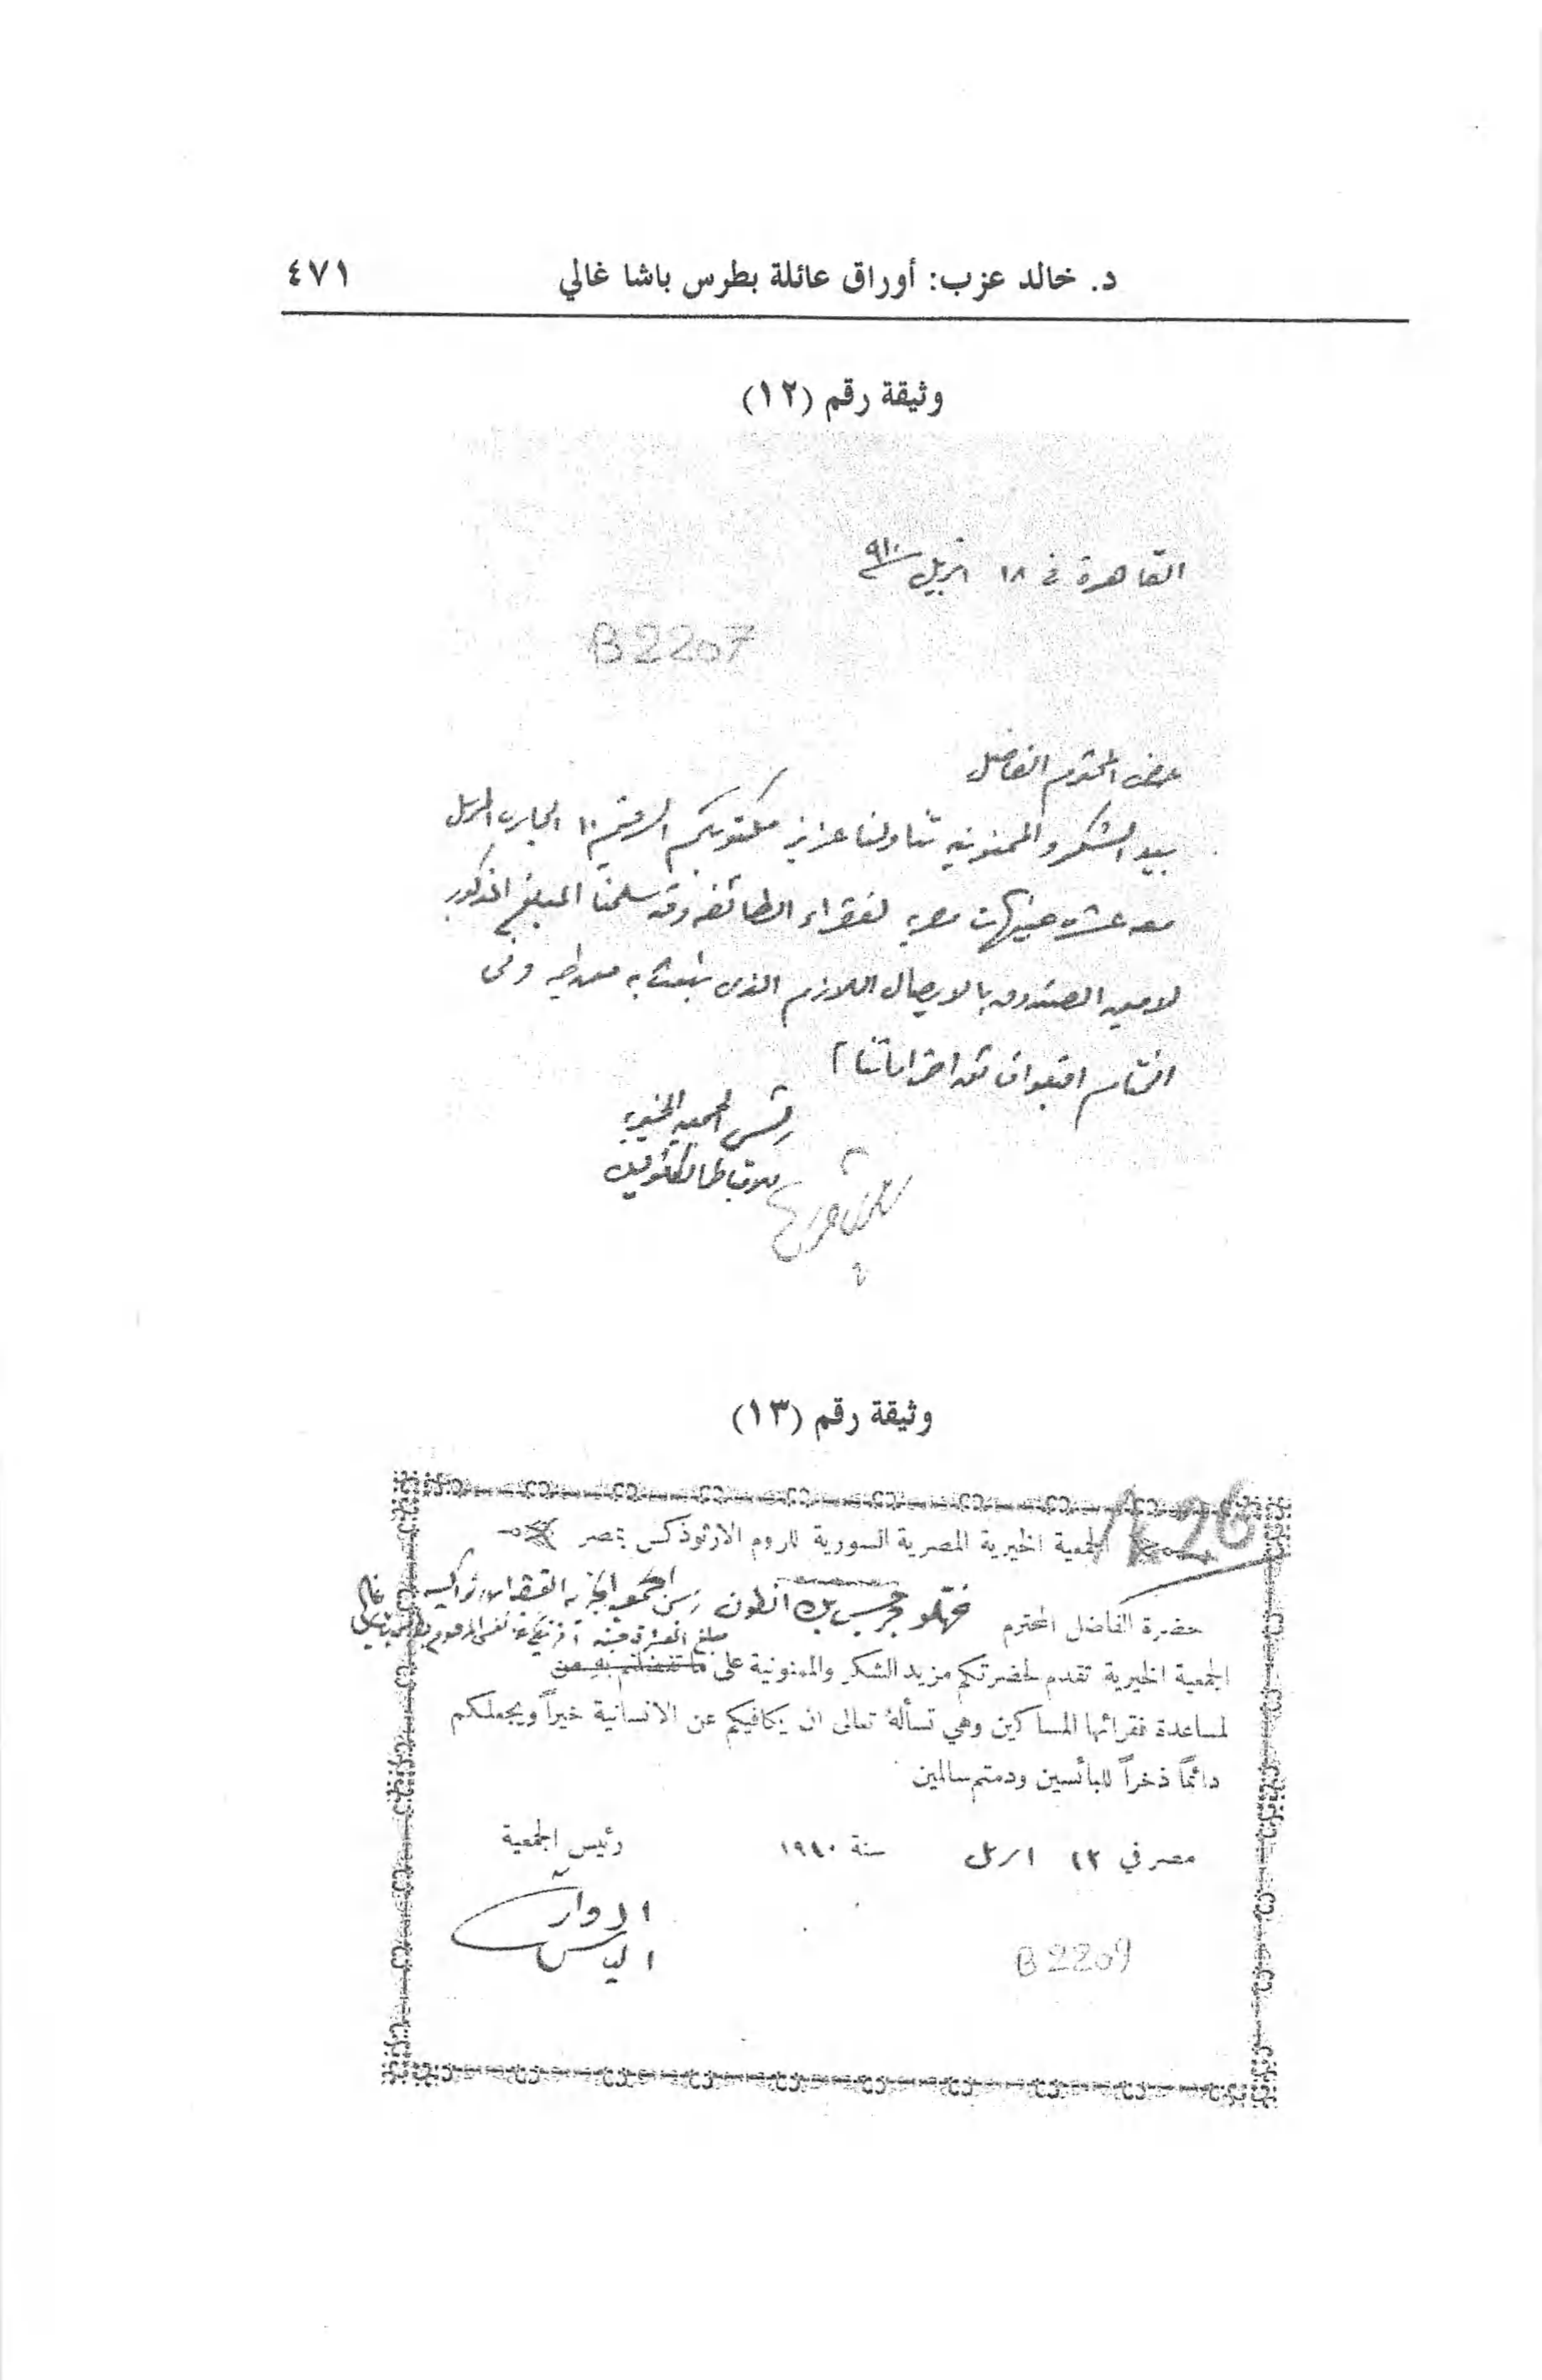 د. خالد عزب: أوراق عائلة بطرس باشا غالي ٤٧١
وثيقة رقم (١٢)
القاهرة في ١٨ ابريل ٩١٠
B2207
المحترم الفاضل
بيد الشكر والممنونية تناولنا عزيز مكتوبكم الرقيم ١٠ الجاري المرسل
معه عشرة جنيهات مصرية لفقراء الطائفة وقد سلمنا المبلغ المذكور
لامين الصندوق بالايصال اللازم الذي بعثنا به وفي
الختام اقبلوا احتراماتنا
رئيس الجمعية الخيرية
للاقباط الكاثوليك
وثيقة رقم (١٣)
الجمعية الخيرية المصرية السورية للروم الارثوذكس بمصر
حضرة الفاضل المحترم جرجس بك انطون رئيس الجمعية الخيرية القبطية الارثوذكسية
الجمعية الخيرية تقدم لحضرتكم مزيد الشكر والممنونية على ما تفضلتم به من
لمساعدة فقرائها المساكين وهي تسأله تعالى ان يكافيكم عن الانسانية خيراً ويجعلكم
دائماً ذخراً للبائسين ودمتم سالمين
مصر في ١٢ ابريل سنة ١٩١٠ رئيس الجمعية
B2209